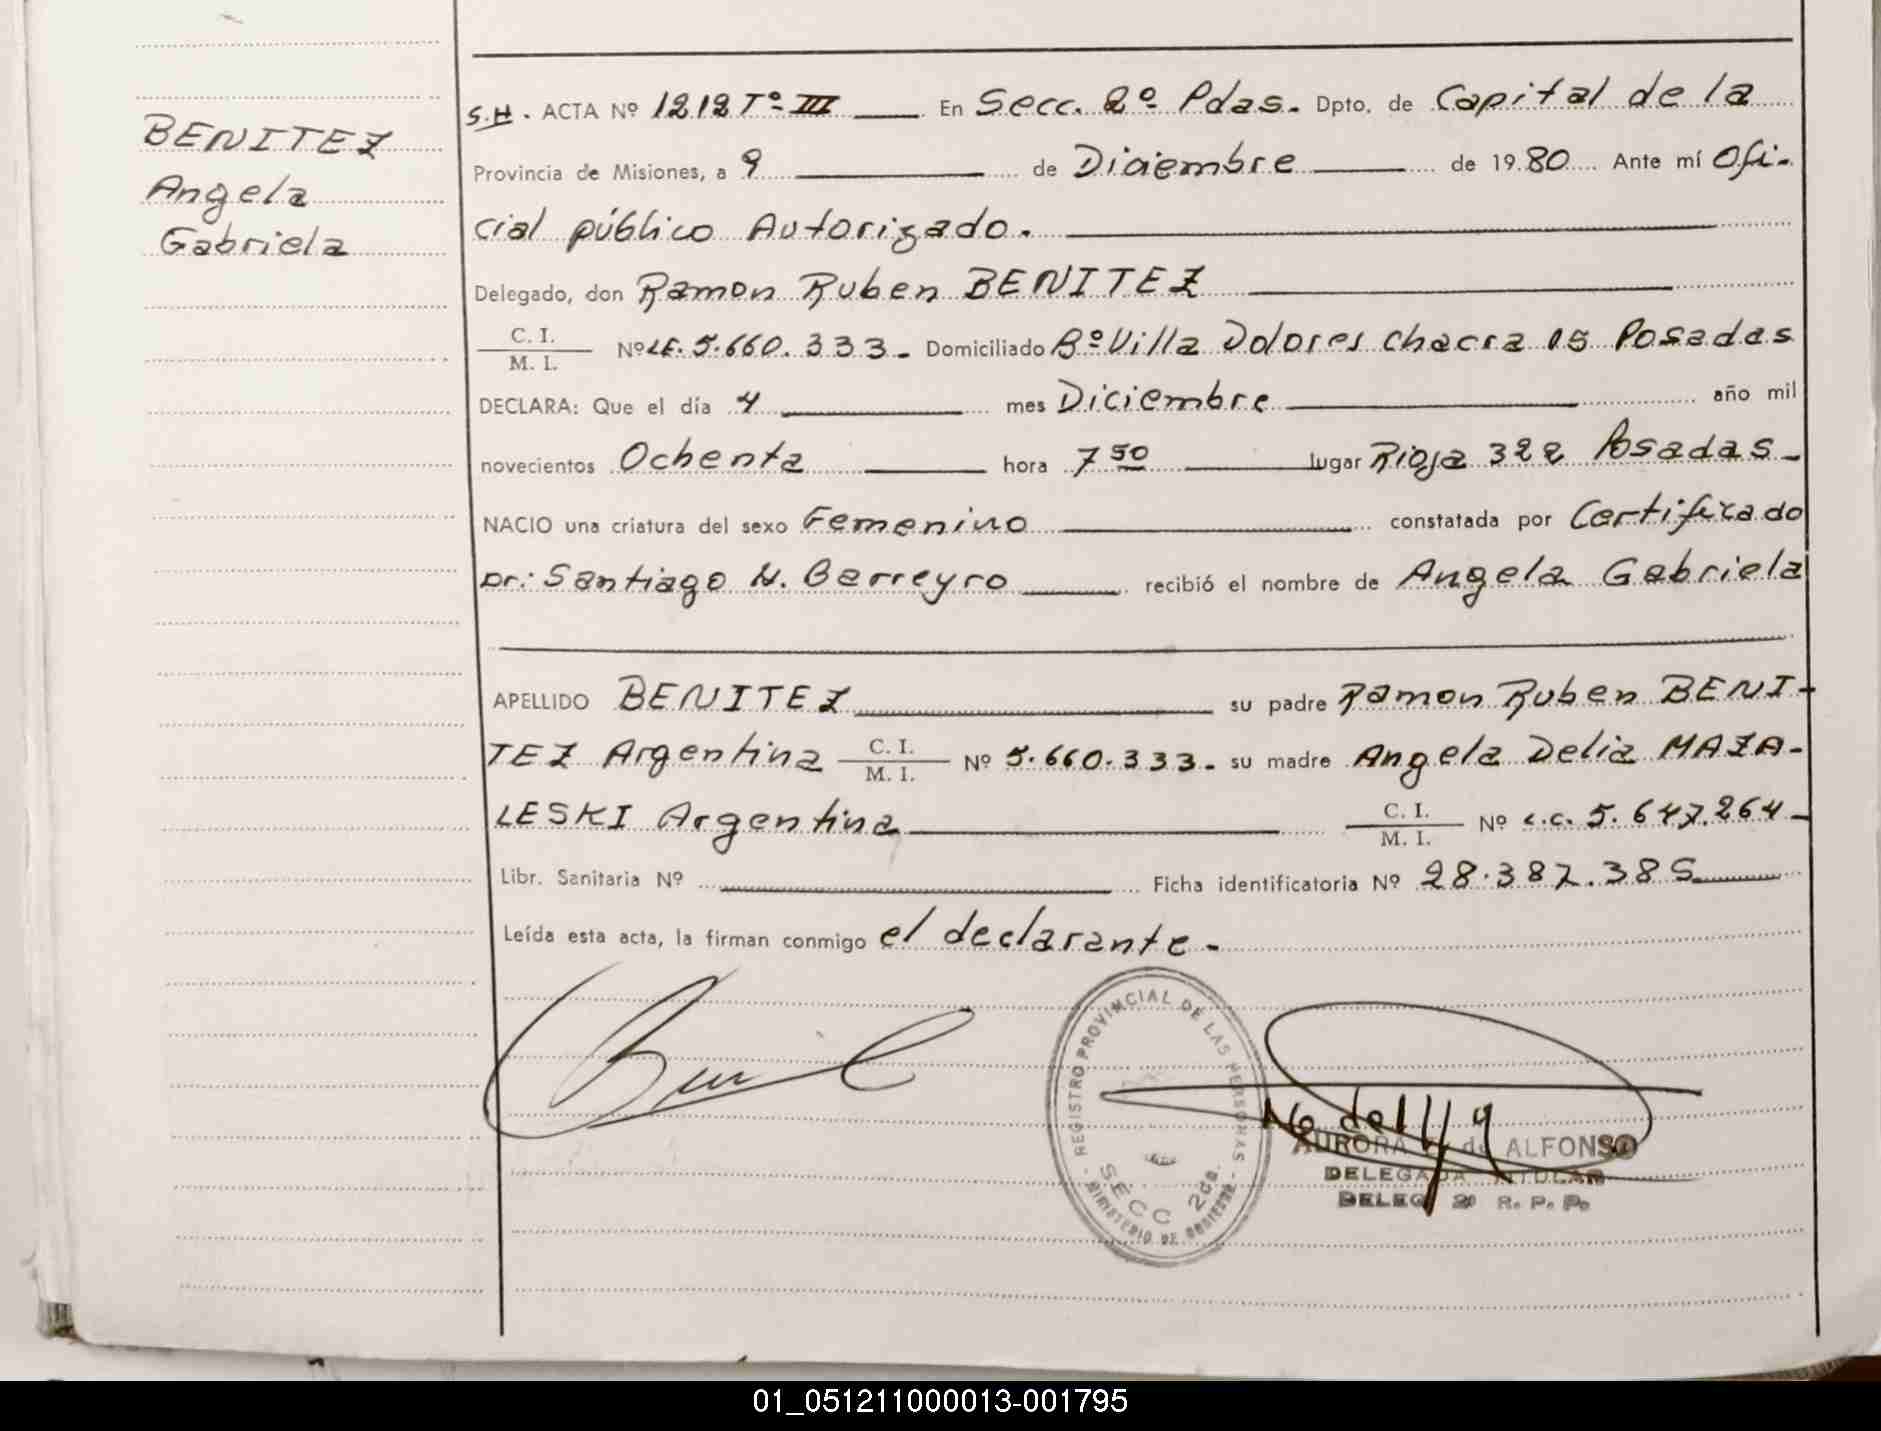 BENITEZ
Angela
Gabriela
S.H. ACTA Nº 1212 Tº III En Secc. 2º Pdas. Dpto. de Capital de la
Provincia de Misiones, a 9 de Diciembre de 1980 Ante mí Ofi-
cial público Autorizado.
Delegado, don Ramon Ruben BENITEZ
C. I.
M. I. Nº LE. 5.660.333.- Domiciliado Bº Villa Dolores chacra 05 Posadas
DECLARA: Que el día 4 mes Diciembre año mil
novecientos Ochenta hora 7 50 lugar Rioja 322 Posadas-
NACIO una criatura del sexo Femenino constatada por Certificado
Dr: Santiago N. Barreyro recibió el nombre de Angela Gabriela
APELLIDO BENITEZ su padre Ramon Ruben BENI-
TEZ Argentina C. I. M. I. Nº 5.660.333.- su madre Angela Delia MAZA-
LESKI Argentina C. I. M. I. Nº L.C. 5.647.264-
Libr. Sanitaria Nº Ficha identificatoria Nº 28.387.385
Leída esta acta, la firman conmigo el declarante-
REGISTRO PROVINCIAL DE LAS PERSONAS
SECC 2da.
MINISTERIO DE GOBIERNO
AURORA de ALFONSO
DELEGADA TITULAR
DELEG 2ª R. P. P.
01_051211000013-001795